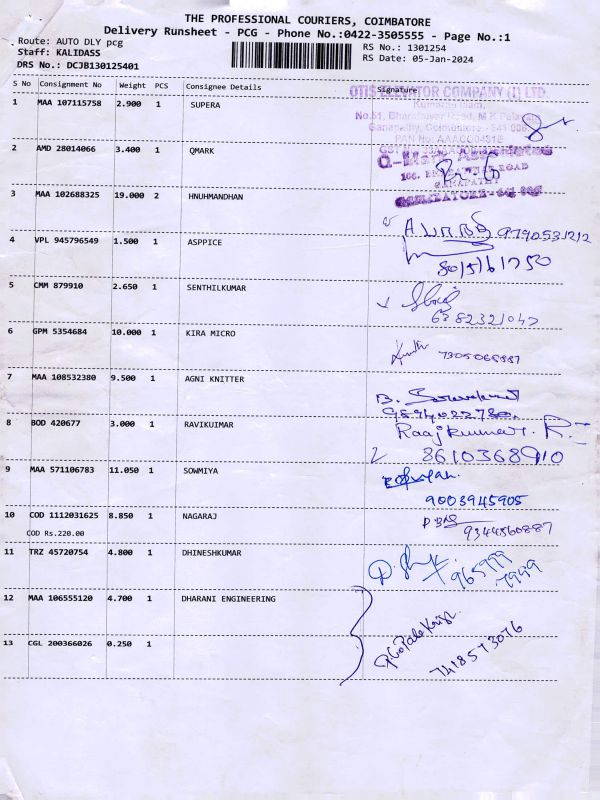 THE PROFESSIONAL COURIERS, COIMBATORE
Delivery Runsheet - PCG - Phone No.:0422-3505555 - Page No.:1
Route: AUTO DLY pcg
RS No.: 1301254
Staff: KALIDASS
RS Date: 05-Jan-2024
DRS No.: DCJB130125401
S No Consignment No Weight PCS Consignee Details Signature
OTIS ELEVATOR COMPANY (I) LTD
1 MAA 107115758 2.900 1 SUPERA
2 AMD 28014066 3.400 1 QMARK
3 MAA 102688325 19.000 2 HNUHMANDHAN
9790531212
4 VPL 945796549 1.500 1 ASPPICE
5 CMM 879910 2.650 1 SENTHILKUMAR
6382321047
6 GPM 5354684 10.000 1 KIRA MICRO
7 MAA 108532380 9.500 1 AGNI KNITTER
9894022780.
8 BOD 420677 3.000 1 RAVIKUIMAR
Raajkumar. R.
8610368910
9 MAA 571106783 11.050 1 SOWMIYA
9003945905
10 COD 1112031625 8.850 1 NAGARAJ
COD Rs.220.00
9344560887
11 TRZ 45720754 4.800 1 DHINESHKUMAR
965999
7999
12 MAA 106555120 4.700 1 DHARANI ENGINEERING
13 CGL 200366026 0.250 1
7418573076